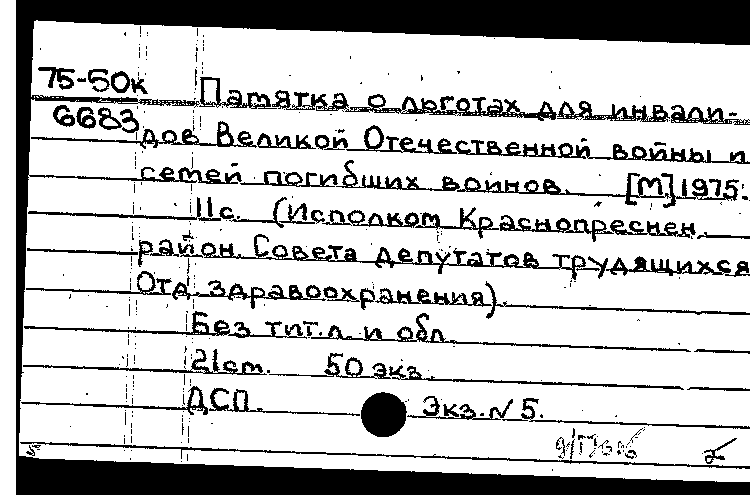 75-50к
6683
Памятка о льготах для инвали-
дов Великой Отечественной войны и
семей погибших воинов. [М] 1975.
11с. (Исполком Краснопреснен.
район. Совета депутатов трудящихся
Отд. здравоохранения).
Без тит.л. и обл.
21см. 50 экз.
ДСП. Экз.№5.